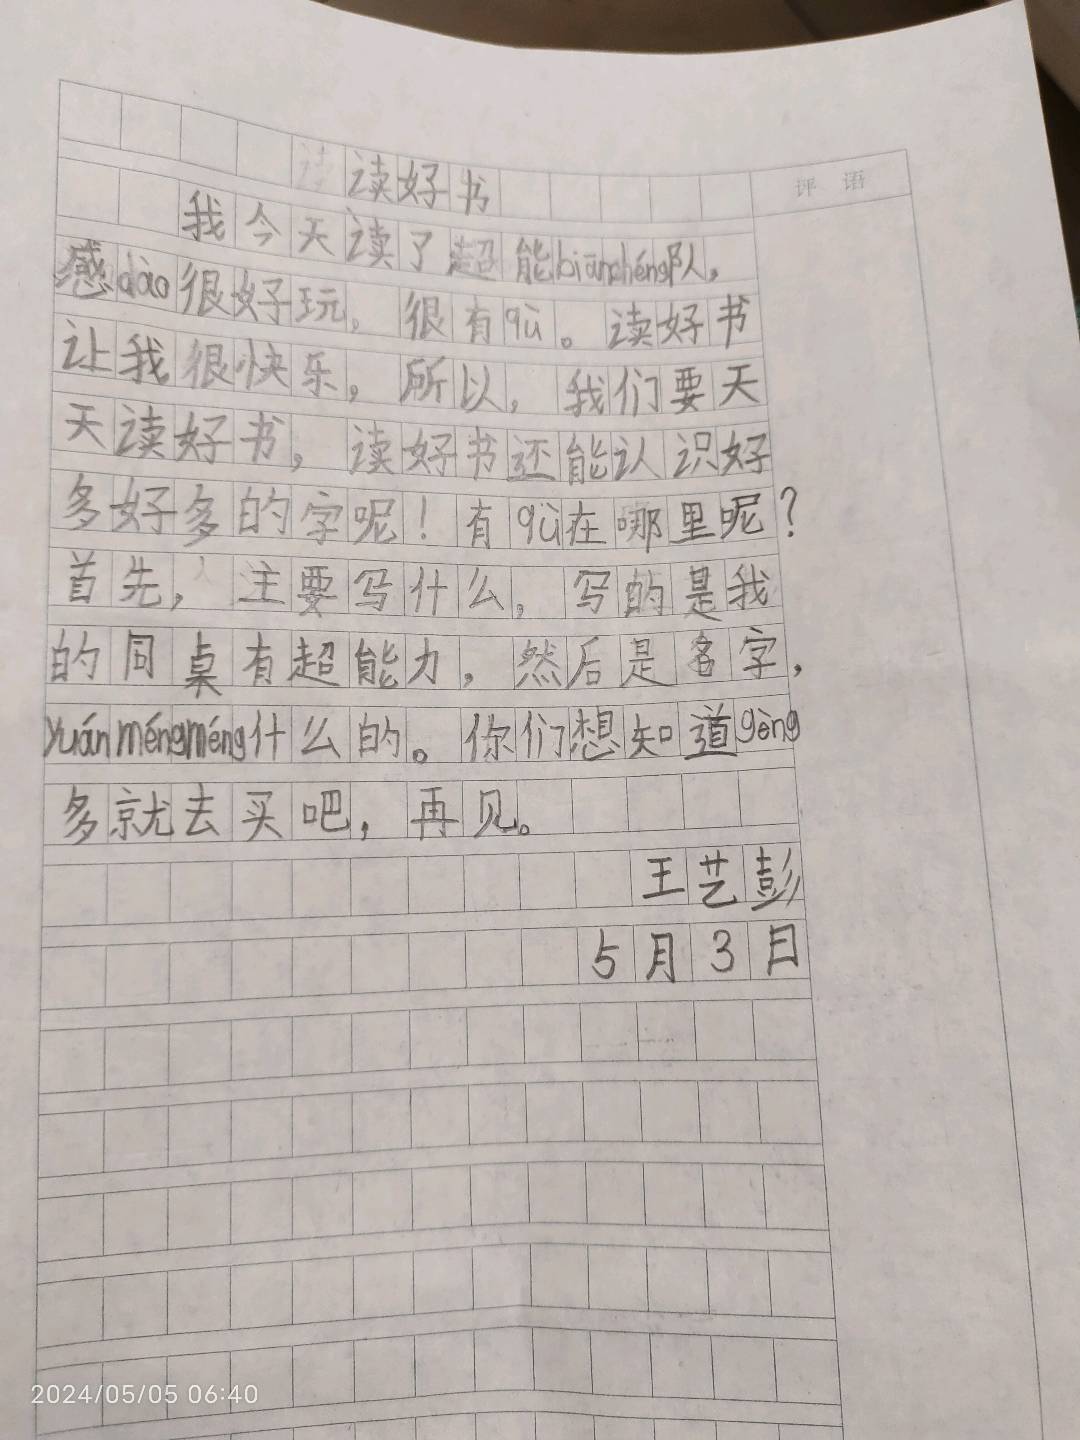 读好书
评 语
我今天读了超能biānchéng队，
感dào很好玩，很有qù。读好书
让我很快乐，所以，我们要天
天读好书，读好书还能认识好
多好多的字呢！有qù在哪里呢？
首先，主要写什么，写的是我
的同桌有超能力，然后是名字，
yuánméngméng什么的。你们想知道gèng
多就去买吧，再见。
王艺彭
5月3日
2024/05/05 06:40